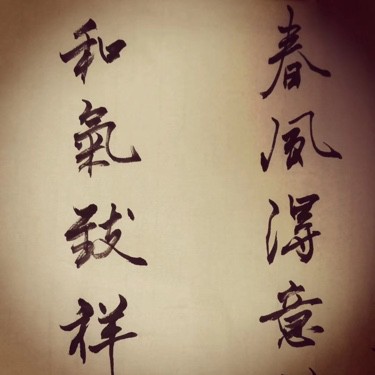 春風得意
和氣致祥